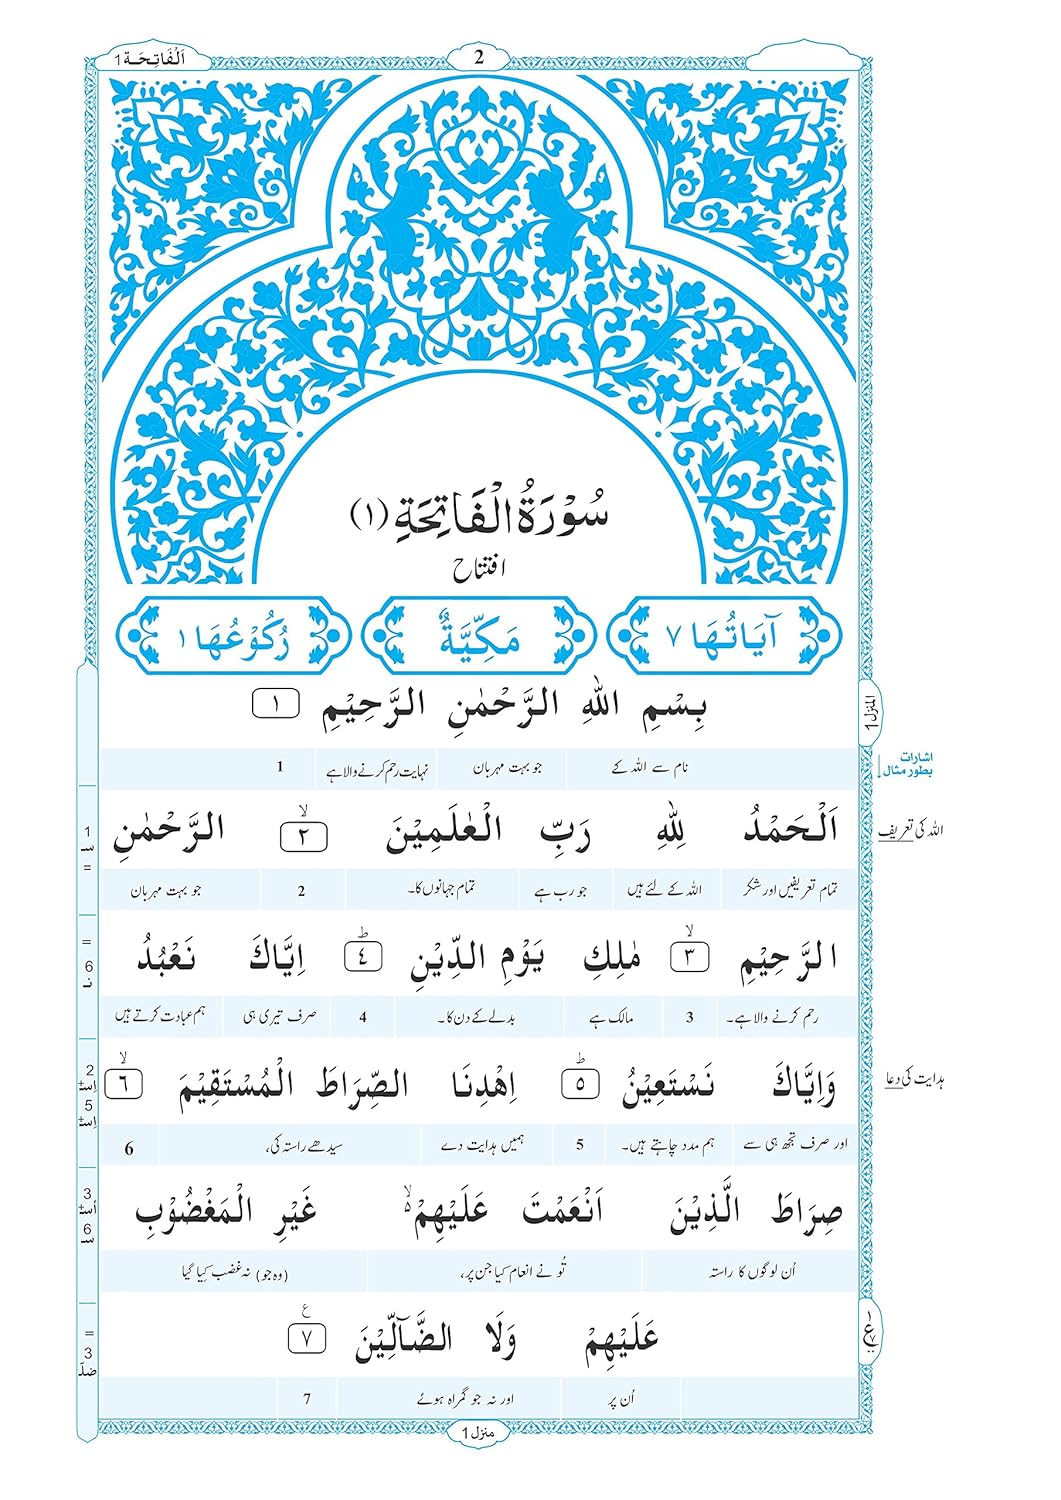 اَلْفَاتِحَة 1
2
سُوْرَةُ الْفَاتِحَةِ (١)
افتتاح
آيَاتُهَا ٧
مَكِّيَّةٌ
رُكُوْعُهَا ١
بِسْمِ اللّٰهِ الرَّحْمٰنِ الرَّحِيْمِ ١
المنزل 1
نام سے اللہ کے جو بہت مہربان نہایت رحم کرنے والا ہے 1
اشارات
بطور مثال
اَلْحَمْدُ لِلّٰهِ رَبِّ الْعٰلَمِيْنَ ۙ ٢ الرَّحْمٰنِ
اللہ کی تعریف
1
سـ
=
تمام تعریفیں اور شکر اللہ کے لئے ہیں جو رب ہے تمام جہانوں کا۔ 2 جو بہت مہربان
الرَّحِيْمِ ۙ ٣ مٰلِكِ يَوْمِ الدِّيْنِ ؕ ٤ اِيَّاكَ نَعْبُدُ
=
6
نـ
رحم کرنے والا ہے۔ 3 مالک ہے بدلے کے دن کا۔ 4 صرف تیری ہی ہم عبادت کرتے ہیں
وَاِيَّاكَ نَسْتَعِيْنُ ؕ ٥ اِهْدِنَا الصِّرَاطَ الْمُسْتَقِيْمَ ۙ ٦
ہدایت کی دعا
2
اِسـ
5
اِسـ
اور صرف تجھ ہی سے ہم مدد چاہتے ہیں۔ 5 ہمیں ہدایت دے سیدھے راستہ کی، 6
صِرَاطَ الَّذِيْنَ اَنْعَمْتَ عَلَيْهِمْ ۙ غَيْرِ الْمَغْضُوْبِ
3
أسـ
6
سـ
اُن لوگوں کا راستہ تُو نے انعام کیا جن پر، (وہ جو) نہ غضب کیا گیا
عَلَيْهِمْ وَلَا الضَّآلِّيْنَ ع ٧
١
ع
٧
=
3
ضلّ
اُن پر اور نہ جو گمراہ ہوئے 7
منزل 1